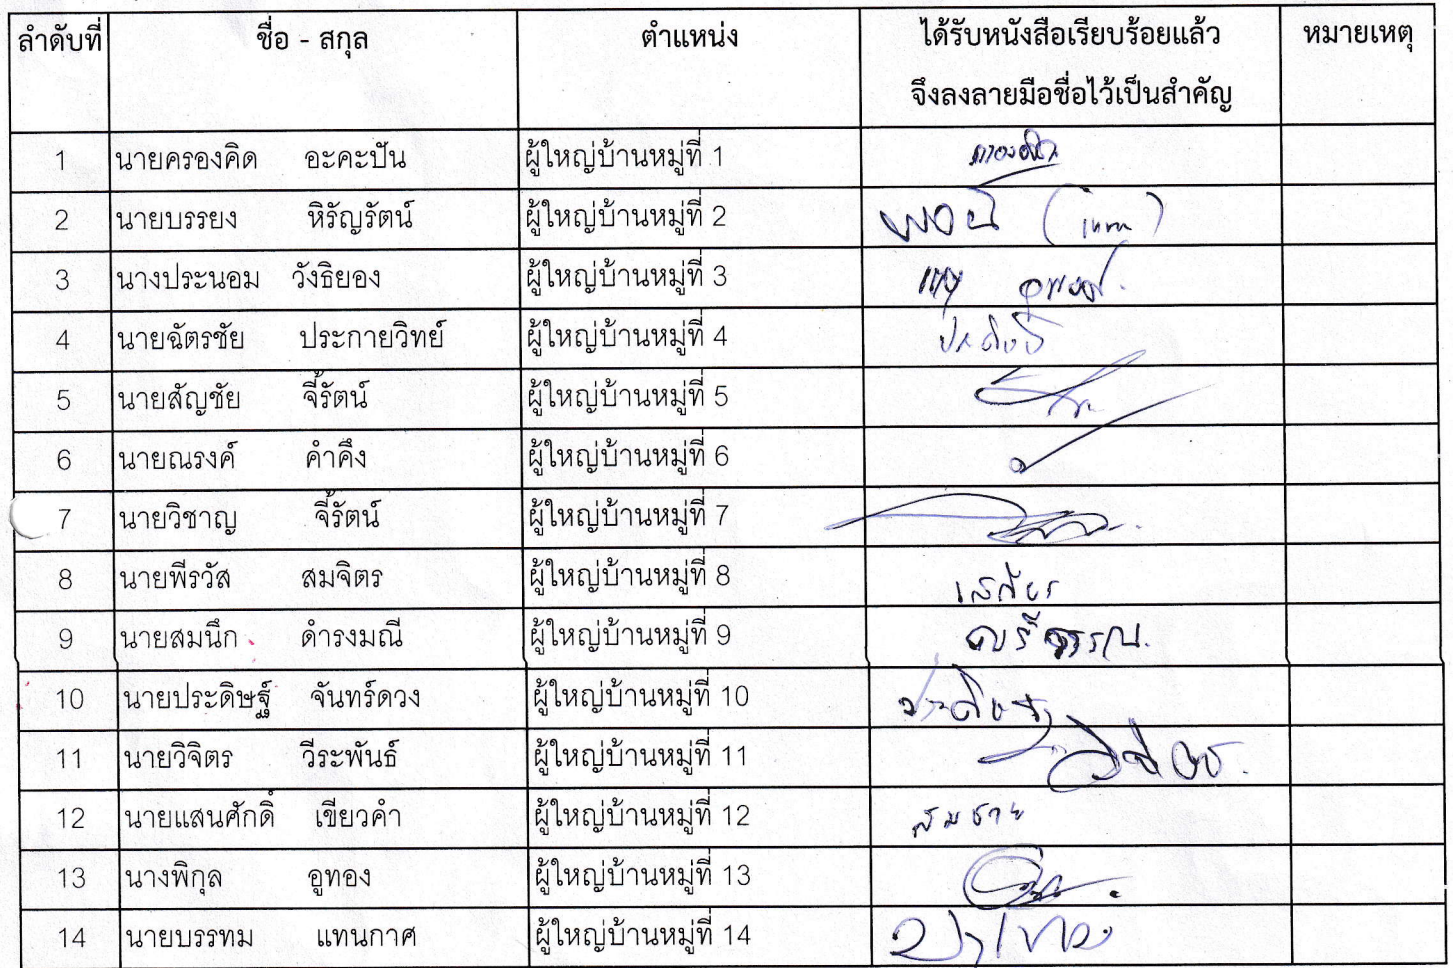 ลำดับที่ ชื่อ - สกุล ตำแหน่ง ได้รับหนังสือเรียบร้อยแล้ว หมายเหตุ
จึงลงลายมือชื่อไว้เป็นสำคัญ
1 นายครองคิด อะคะปัน ผู้ใหญ่บ้านหมู่ที่ 1
2 นายบรรยง หิรัญรัตน์ ผู้ใหญ่บ้านหมู่ที่ 2
3 นางประนอม วังธิยอง ผู้ใหญ่บ้านหมู่ที่ 3
4 นายฉัตรชัย ประกายวิทย์ ผู้ใหญ่บ้านหมู่ที่ 4
5 นายสัญชัย จี้รัตน์ ผู้ใหญ่บ้านหมู่ที่ 5
6 นายณรงค์ คำคึง ผู้ใหญ่บ้านหมู่ที่ 6
7 นายวิชาญ จี้รัตน์ ผู้ใหญ่บ้านหมู่ที่ 7
8 นายพีรวัส สมจิตร ผู้ใหญ่บ้านหมู่ที่ 8
9 นายสมนึก ดำรงมณี ผู้ใหญ่บ้านหมู่ที่ 9
10 นายประดิษฐ์ จันทร์ดวง ผู้ใหญ่บ้านหมู่ที่ 10
11 นายวิจิตร วีระพันธ์ ผู้ใหญ่บ้านหมู่ที่ 11
12 นายแสนศักดิ์ เขียวคำ ผู้ใหญ่บ้านหมู่ที่ 12 สมชาย
13 นางพิกุล อูทอง ผู้ใหญ่บ้านหมู่ที่ 13
14 นายบรรทม แทนกาศ ผู้ใหญ่บ้านหมู่ที่ 14